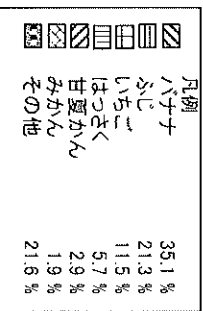 凡例
バナナ 35.1 %
ふじ 21.3 %
いちご 11.5 %
はっさく 5.7 %
甘夏かん 2.9 %
みかん 1.9 %
その他 21.6 %